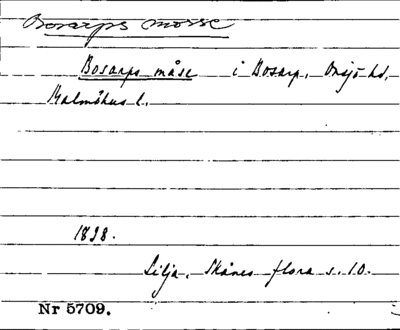 Bosarps mosse
Bosarps måse i Bosarp, Onsjö hd,
Malmöhus l.
1838.
Lilja, Skånes flora s. 10.
Nr 5709.